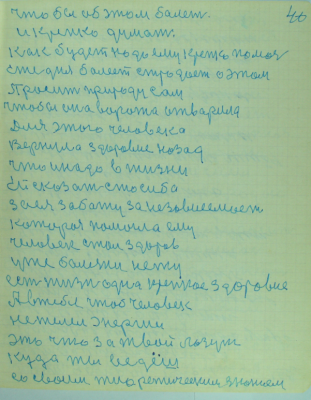 40
что бы об этом болеть.
и крепко думать.
как будет надо ему крепко помоч
сегодня болеть страдает о этом
просит природу сам
чтобы она ворота отварила
для этого человека
вернула здоровие назад
что и надо в жизни
ей сказать спосиба
за
которая помогла ему
человек стал здоров
уже болезни нету
есть одна крепкое здоровие
А в тебе чтоб человек
не энергии
это что за твой лозунг
куда ты ведёш
со своим теаретическим знанием